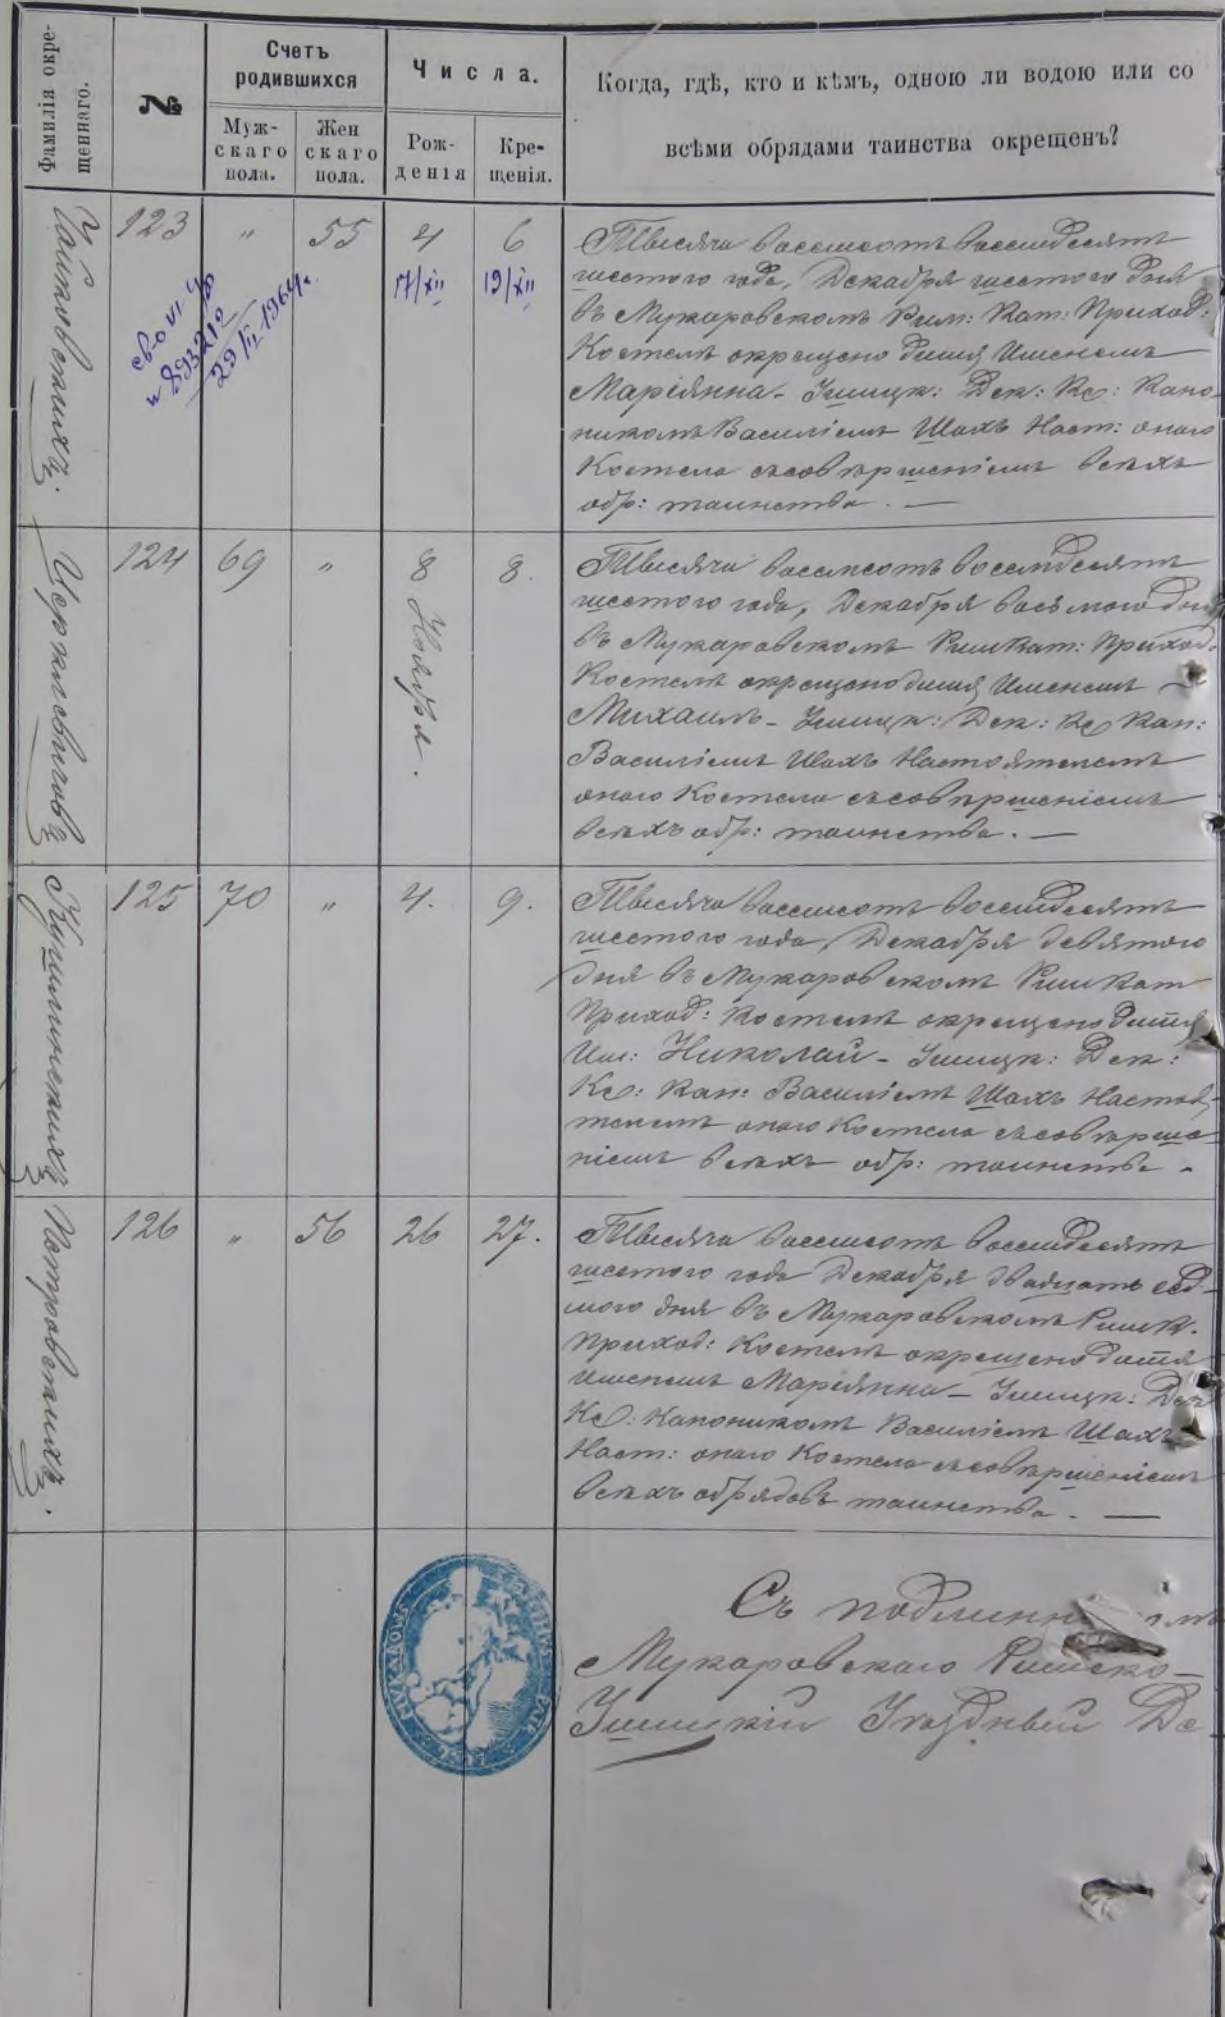 Фамилія окре-
щеннаго.
№
Счетъ
родившихся
Муж-
скаго
пола.
Жен
скаго
пола.
Числа.
Рож-
денія
Кре-
щенія.
Когда, гдѣ, кто и кѣмъ, одною ли водою или со
всѣми обрядами таинства окрещенъ?
123
"
55
4
6
17/XII
19/XII
св-о VI
29/II-1964г.
Тысяча восемсотъ восемдесятъ
шестого года, Декабря шестого дня
въ Мукаровскомъ Рим: Кат: Приход:
Костелѣ окрещено дитя Именемъ
Маріянна - Ушицк: Дек: Кс: Кано-
никомъ Василіемъ Шахъ Наст: оного
Костела съ совѣршеніемъ всѣхъ
обр: таинства. —
124
69
"
8
Ноября.
8.
Тысяча восемсотъ восемдесятъ
шестого года, Декабря восьмого дня
въ Мукаровскомъ РимКат: Приход:
Костелѣ окрещено дитя Именемъ
Михаилъ - Ушицк: Дек: Кс Кан:
Василіемъ Шахъ Настоятелемъ
оного Костела съ совѣршеніемъ
всѣхъ обр: таинства. —
125
70
"
4.
9.
Тысяча восемсотъ восемдесятъ
шестого года, Декабря девятого
дня въ Мукаровскомъ РимКат
Приход: Костелѣ окрещено дитя
Им: Николай - Ушицк: Дек:
Кс: Кан: Василіемъ Шахъ Настоя-
телемъ оного Костела съ совѣрше-
ніемъ всѣхъ обр: таинства -
Петровскихъ.
126
"
56
26
27.
Тысяча восемсотъ восемдесятъ
шестого года Декабря двадцать сед-
мого дня въ Мукаровскомъ РимК.
Приход: Костелѣ окрещено дитя
Именемъ Маріянна - Ушицк: Дек
Кс: Каноникомъ Василіемъ Шахъ
Наст: оного Костела съ совѣршеніемъ
всѣхъ обрядовъ таинства. —
MUKAROWS
Съ подлинн
Мукаровскаго Римско-
Ушицкій Уѣздный Де